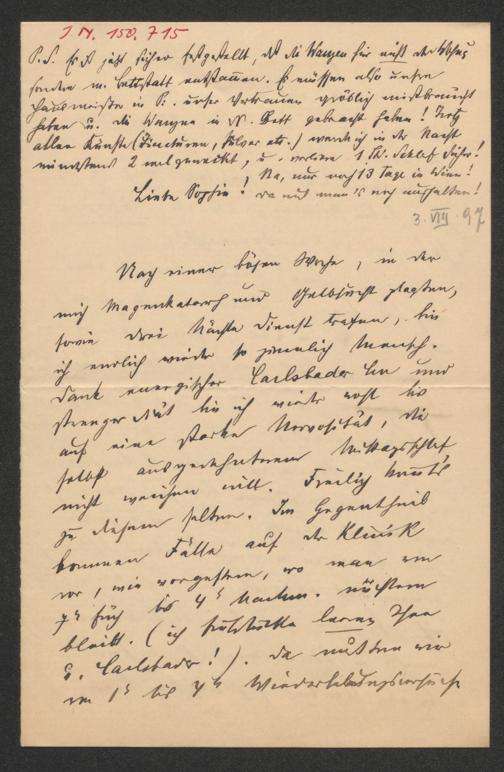 I.N. 150.715
P.S. Es ist jetzt sicher festgestellt, daß die Wanzen hier nicht der Wohng
sondern m. Bettstatt entstammen. Es müssen also unsre
Hausmeister in P. unser Vertrauen gröblich missbraucht
haben u. die Wanzen in N. Bett gebracht haben! Trotz
allen Künste (Tincturen, Pulver etc.) werde ich in der Nacht
mindestens 2 mal geweckt, u. verliere 1 St. Schlaf früher!
Na, nur noch 13 Tage in Wien!
Liebe Sophie! da muß man's noch aushalten!
3. VIII. 97
Nach einer bösen Woche, in der
mich Magenkatarrh und Gelbsucht plagten,
sowie drei Nächte Dienst trafen, bin
ich endlich wieder so ziemlich Mensch.
Dank energischer Carlsbader Cur und
strenger Diät bin ich wieder wohl bis
auf eine starke Nervosität, die
selbst ausgedehnterem Mittagsschlaf
nicht weichen will. Freilich kommt's
zu diesem selten. Im Gegentheil
kommen Fälle auf der Klinik
vor, wie vorgestern, wo man von
7h früh bis 4h Nachm. nüchtern
bleibt. (ich frühstückte leeren Thee
u. Carlsbader!). Da mußten wir
von 1h bis 4h Wiederbelebungsversuche